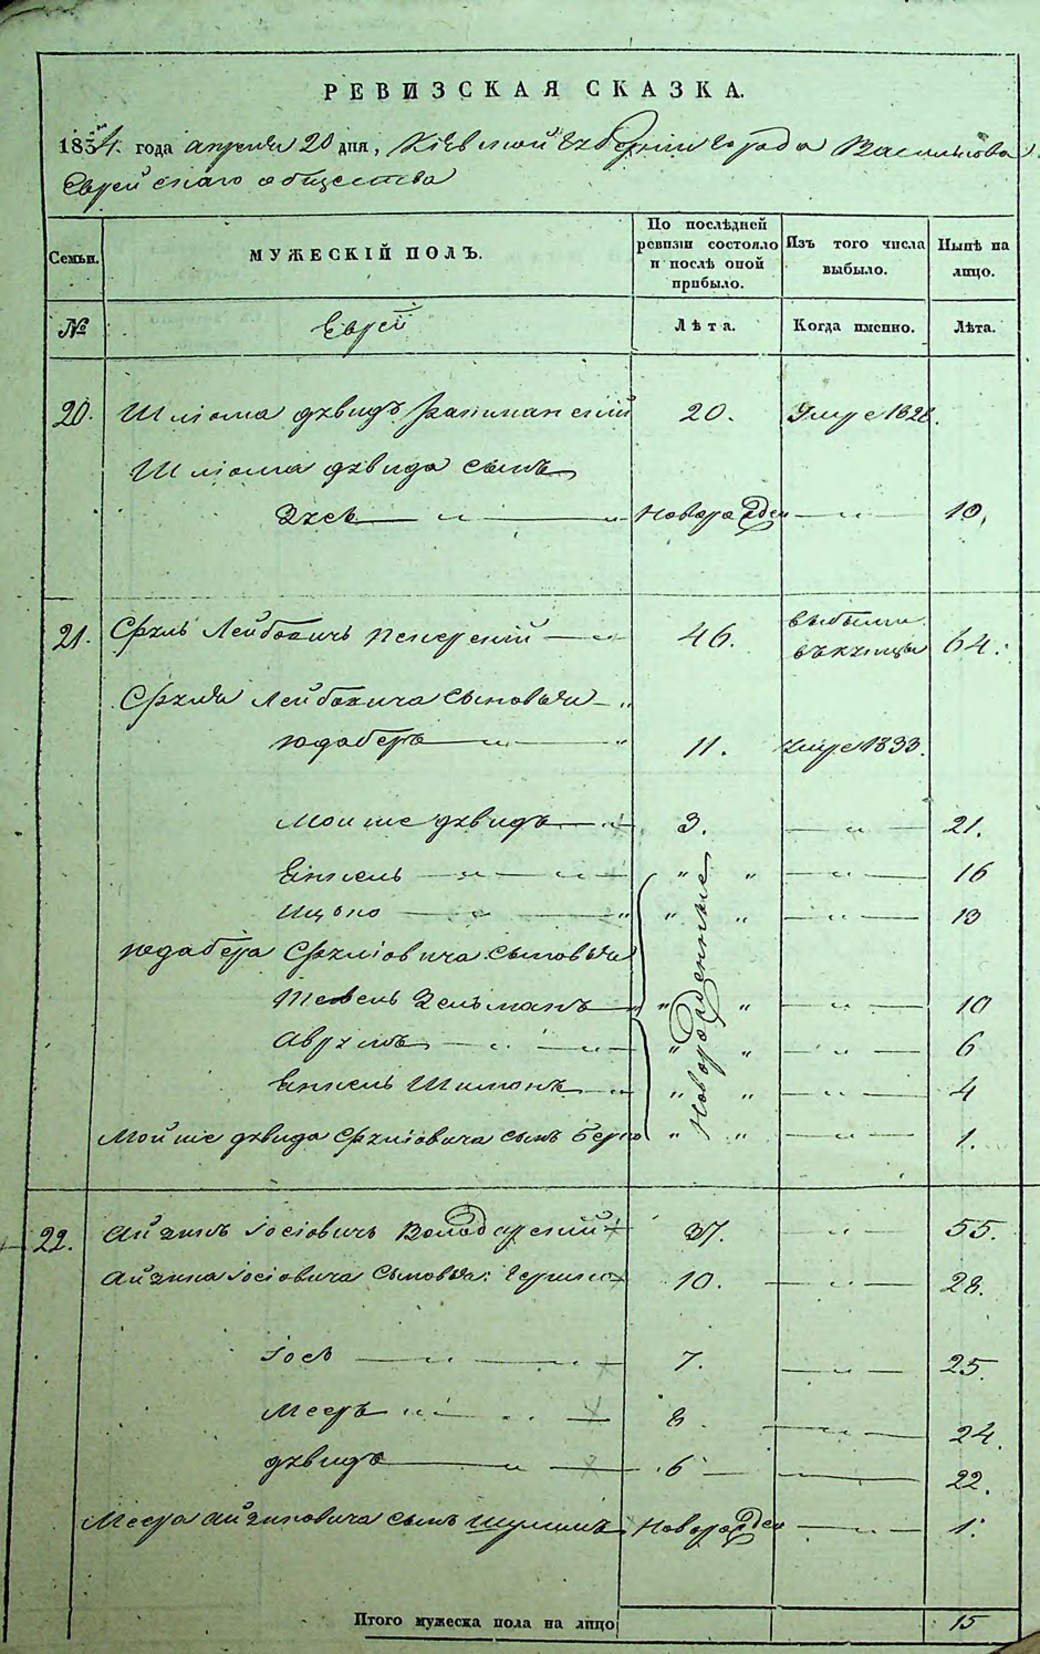 РЕВИЗСКАЯ СКАЗКА.
1834. года апреля 20 дня, Кіевской губерніи города Василькова
Еврейскаго общества
Семьи. МУЖЕСКІЙ ПОЛЪ. По послѣдней ревизіи состояло и послѣ оной прибыло. Изъ того числа выбыло. Нынѣ на лицо.
№ Еврей Лѣта. Когда именно. Лѣта.
20. Шліома Дувидъ 20. Умре 1826.
Шліома Дувида сынъ
Новорожден — " — 10.
21. Сруль Лейбовичъ 46. 64.
Сруля Лейбовича сыновья — "
Юдаберъ — " — " 11. Умре 1833.
Мошие Дувидъ — " 3. — " — 21.
Еинхель — " — " " " — " — 16
Ицько — " — " " " — " — 13
Юдабера Срулiовича сыновья
Тевель Зельманъ " " — " — 10
Аврумъ — " — " " " — " — 6
Еинхель Шимонъ — " " " — " — 4
Мойше Дувида Срулiовича сынъ Берко " " — " — 1.
Новорожденные
22. Айзикъ Іосіовичъ Володарскій 37. — " — 55.
Айзика Іосіовича сыновья: 10. — " — 28.
Іось — " — " 7. — " — 25.
Мееръ " " 8. — " — 24.
Дувидъ — " — 6 — 22.
Меера Айзиковича сынъ Шулимъ Новорожден — " — 1.
Итого мужеска пола на лицо 15